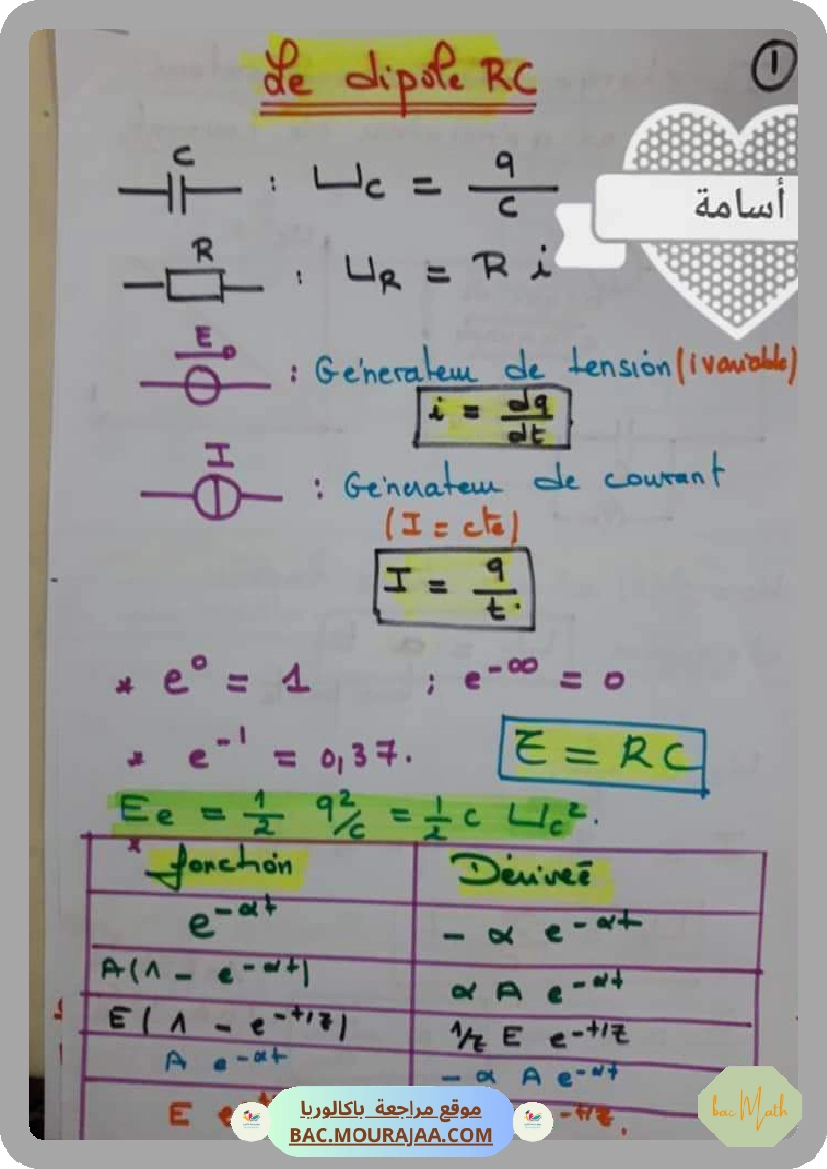 Le dipôle RC
1
أسامة
C : Uc = q/c
R : UR = R i
E : Génerateur de tension (i variable)
i = dq/dt
I : Génerateur de courant
(I = cte)
I = q/t.
* e⁰ = 1 ; e^-∞ = 0
* e^-1 = 0,37. τ = RC
Ee = 1/2 q²/c = 1/2 c Uc².
* fonction Dérivée
e^-αt - α e^-αt
A(1 - e^-αt) α A e^-αt
E(1 - e^-t/τ) 1/τ E e^-t/τ
A e^-αt - α A e^-αt
E e -t/τ.
موقع مراجعة باكالوريا
BAC.MOURAJAA.COM
bac Math